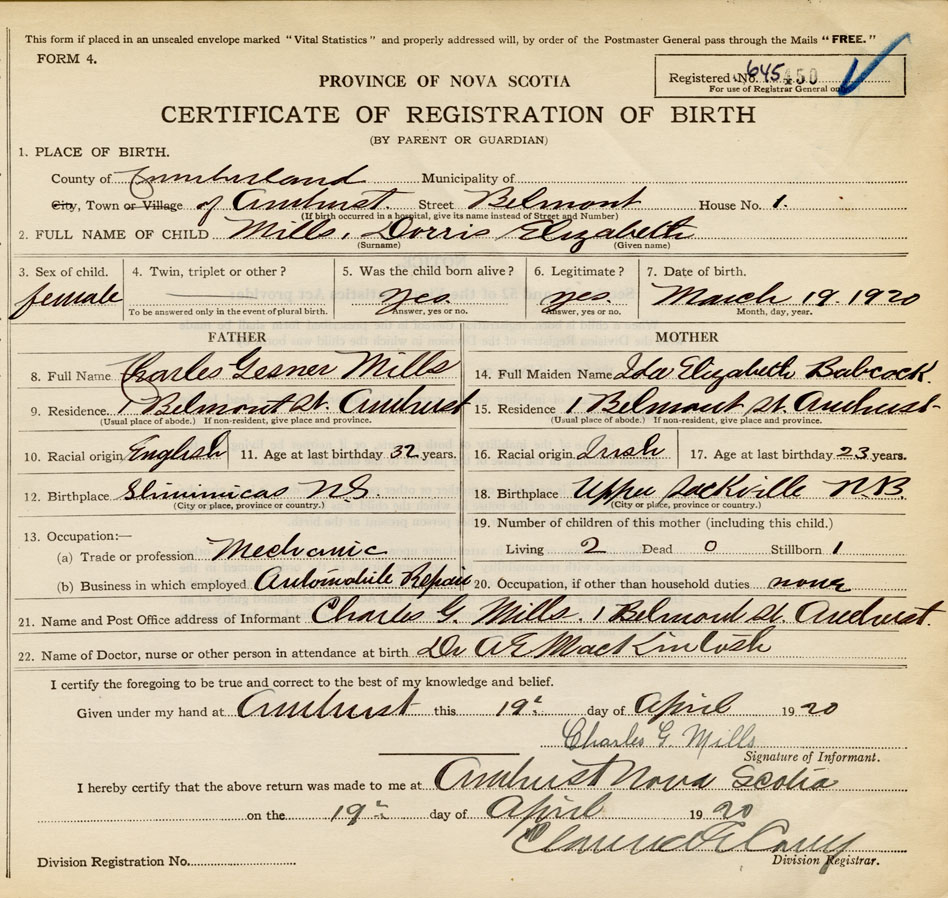 This form if placed in an unsealed envelope marked "Vital Statistics" and properly addressed will, by order of the Postmaster General pass through the Mails "FREE."
FORM 4.
Registered No. 645 450
For use of Registrar General only
PROVINCE OF NOVA SCOTIA
CERTIFICATE OF REGISTRATION OF BIRTH
(BY PARENT OR GUARDIAN)
1. PLACE OF BIRTH.
County of Cumberland Municipality of
City, Town or Village of Amherst. Street Belmont House No. 1.
(If birth occurred in a hospital, give its name instead of Street and Number)
2. FULL NAME OF CHILD Mills, Dorris Elizabeth
(Surname) (Given name)
3. Sex of child. 4. Twin, triplet or other? 5. Was the child born alive? 6. Legitimate? 7. Date of birth.
female yes. yes. March 19. 1920
To be answered only in the event of plural birth. Answer, yes or no. Answer, yes or no. Month, day, year.
FATHER MOTHER
8. Full Name Charles Gesner Mills 14. Full Maiden Name Ida Elizabeth Babcock.
9. Residence 1 Belmont St. Amherst 15. Residence 1 Belmont St. Amherst
(Usual place of abode.) If non-resident, give place and province. (Usual place of abode.) If non-resident, give place and province.
10. Racial origin English 11. Age at last birthday 32 years. 16. Racial origin Irish 17. Age at last birthday 23 years.
12. Birthplace N.S. 18. Birthplace Upper Sackville N.B.
(City or place, province or country.) (City or place, province or country.)
13. Occupation:— 19. Number of children of this mother (including this child.)
(a) Trade or profession Mechanic Living 2 Dead 0 Stillborn 1
(b) Business in which employed Automobile Repair 20. Occupation, if other than household duties none
21. Name and Post Office address of Informant Charles G. Mills. 1 Belmont St. Amherst.
22. Name of Doctor, nurse or other person in attendance at birth Dr A E MacKintosh
I certify the foregoing to be true and correct to the best of my knowledge and belief.
Given under my hand at Amherst this 19 day of April 1920
Charles G Mills
Signature of Informant.
I hereby certify that the above return was made to me at Amherst Nova Scotia
on the 19 day of April 1920
Clarence
Division Registrar.
Division Registration No.